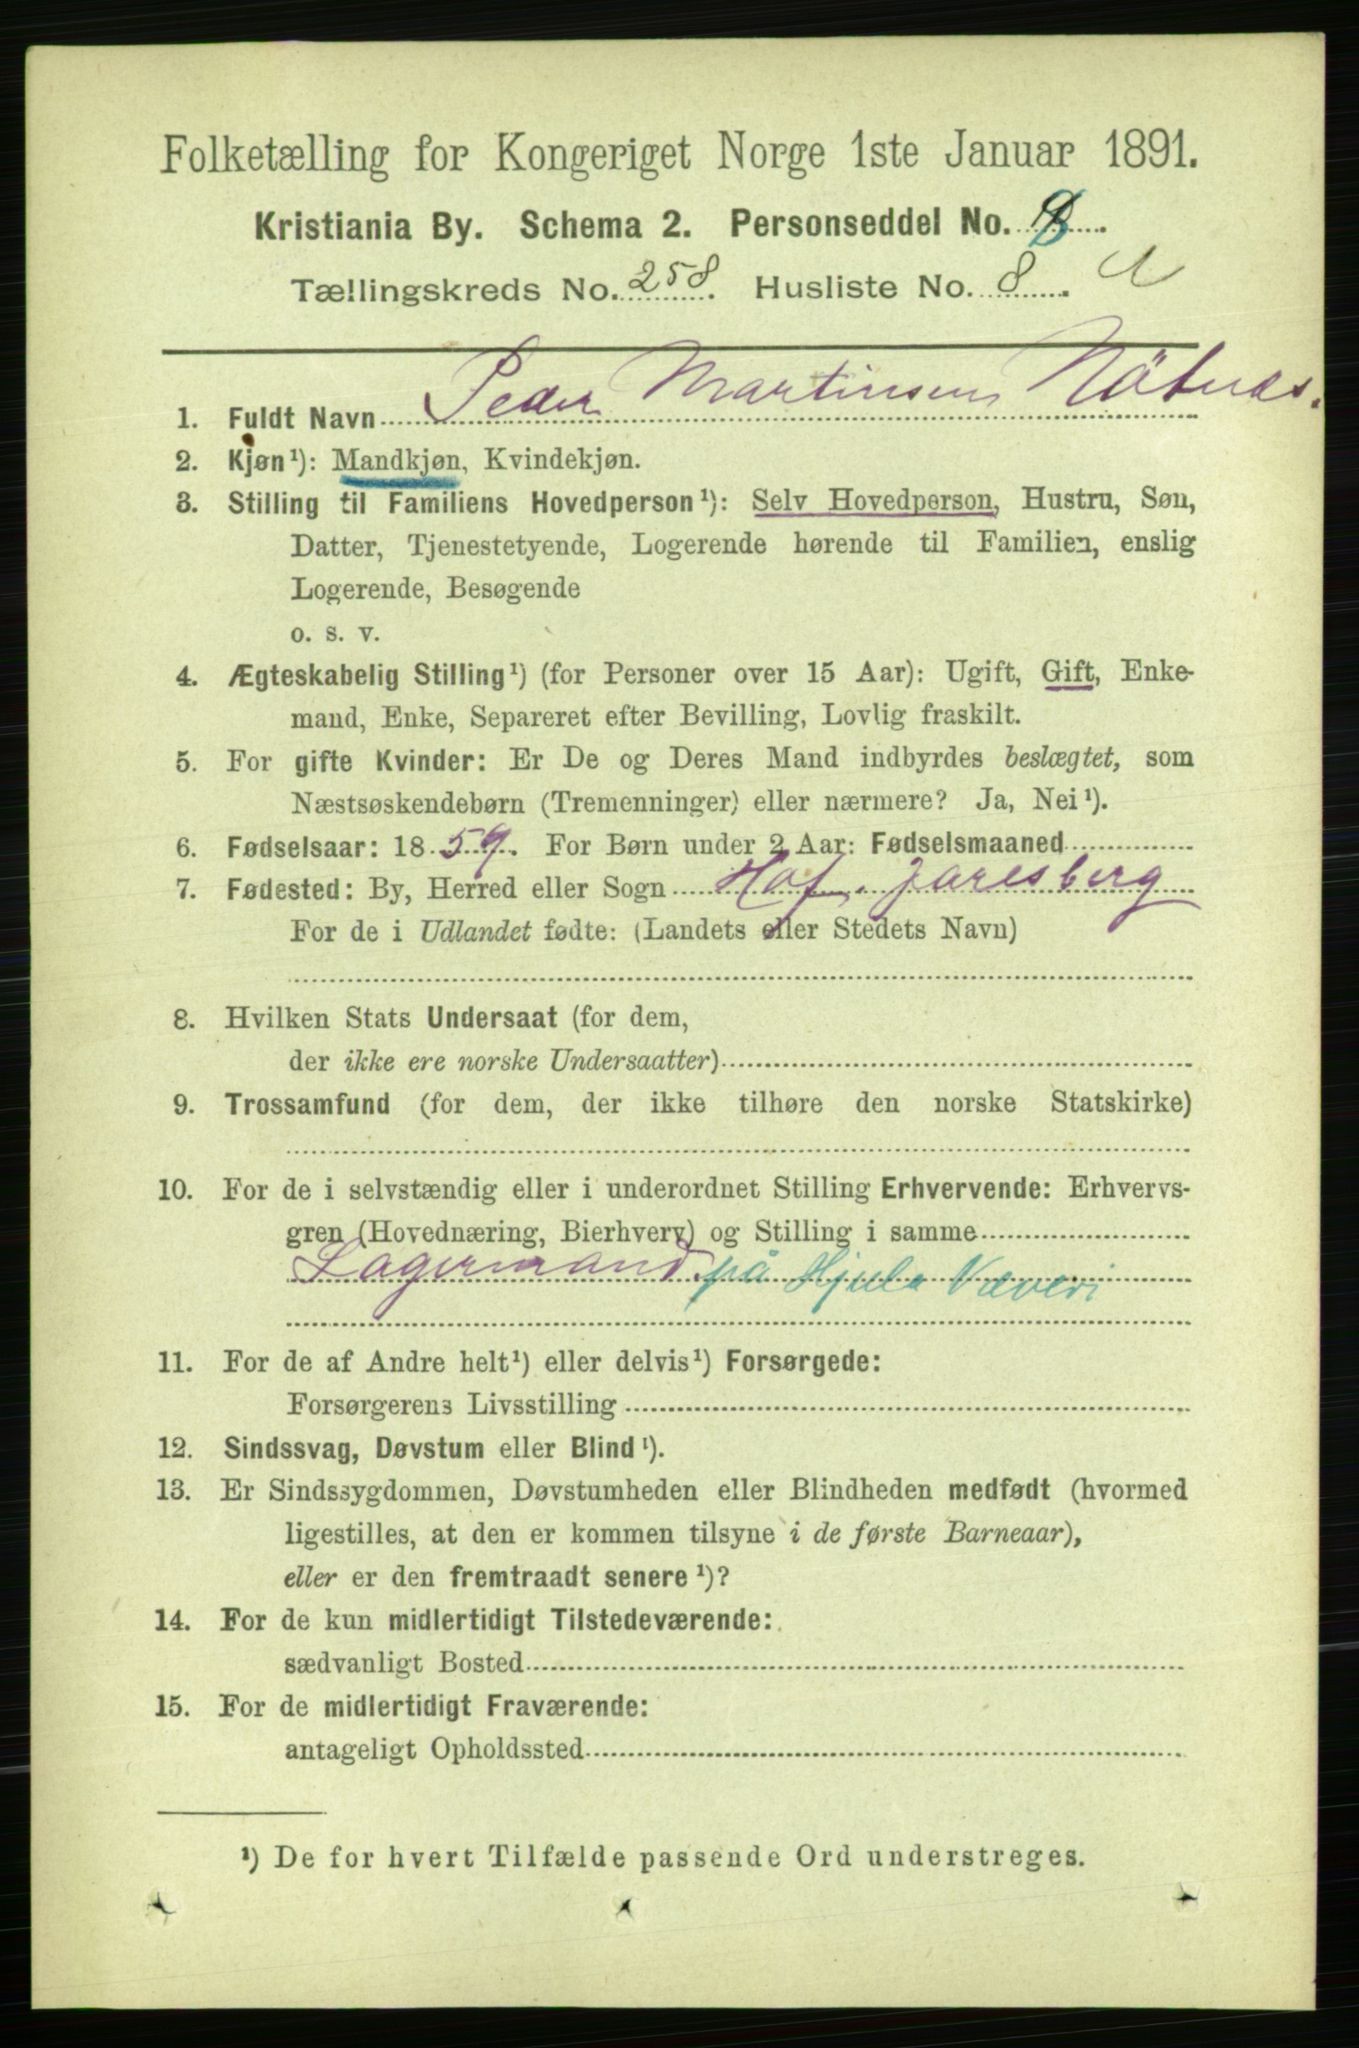 Folketælling for Kongeriget Norge 1ste Januar 1891.
Kristiania By. Schema 2. Personseddel No. 8.
Tællingskreds No. 258. Husliste No. 8.
1. Fuldt Navn Peder Martinsen Nötnæs.
2. Kjøn¹): Mandkjøn, Kvindekjøn.
3. Stilling til Familiens Hovedperson¹): Selv Hovedperson, Hustru, Søn,
Datter, Tjenestetyende, Logerende hørende til Familien, enslig
Logerende, Besøgende
o. s. v.
4. Ægteskabelig Stilling¹) (for Personer over 15 Aar): Ugift, Gift, Enke-
mand, Enke, Separeret efter Bevilling, Lovlig fraskilt.
5. For gifte Kvinder: Er De og Deres Mand indbyrdes beslægtet, som
Næstsøskendebørn (Tremenninger) eller nærmere? Ja, Nei¹).
6. Fødselsaar: 1859. For Børn under 2 Aar: Fødselsmaaned
7. Fødested: By, Herred eller Sogn Hof. Jarlsberg
For de i Udlandet fødte: (Landets eller Stedets Navn)
8. Hvilken Stats Undersaat (for dem,
der ikke ere norske Undersaatter)
9. Trossamfund (for dem, der ikke tilhøre den norske Statskirke)
10. For de i selvstændig eller i underordnet Stilling Erhvervende: Erhvervs-
gren (Hovednæring, Bierhverv) og Stilling i samme
Lagermand på Hjula Væveri
11. For de af Andre helt¹) eller delvis¹) Forsørgede:
Forsørgerens Livsstilling
12. Sindssvag, Døvstum eller Blind¹).
13. Er Sindssygdommen, Døvstumheden eller Blindheden medfødt (hvormed
ligestilles, at den er kommen tilsyne i de første Barneaar),
eller er den fremtraadt senere¹)?
14. For de kun midlertidigt Tilstedeværende:
sædvanligt Bosted
15. For de midlertidigt Fraværende:
antageligt Opholdssted
¹) De for hvert Tilfælde passende Ord understreges.